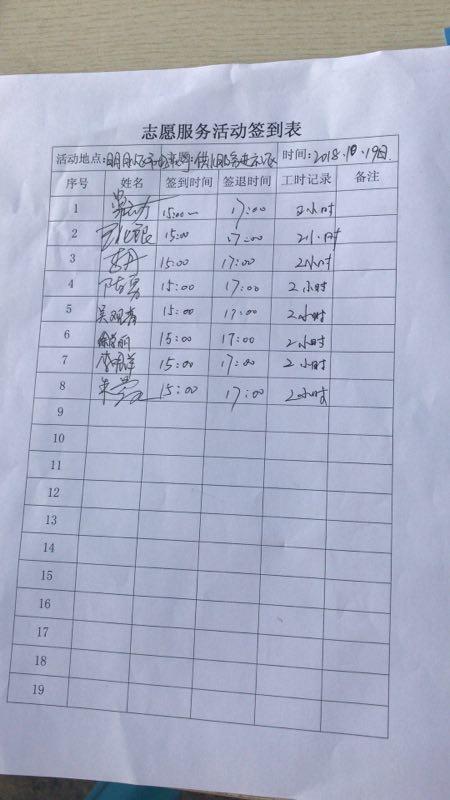 志愿服务活动签到表
活动地点: 主题: 时间: 2018.10.19日
序号 姓名 签到时间 签退时间 工时记录 备注
1 15:00 17:00 2小时
2 15:00 17:00 2小时
3 15:00 17:00 2小时
4 15:00 17:00 2小时
5 15:00 17:00 2小时
6 15:00 17:00 2小时
7 15:00 17:00 2小时
8 15:00 17:00 2小时
9
10
11
12
13
14
15
16
17
18
19